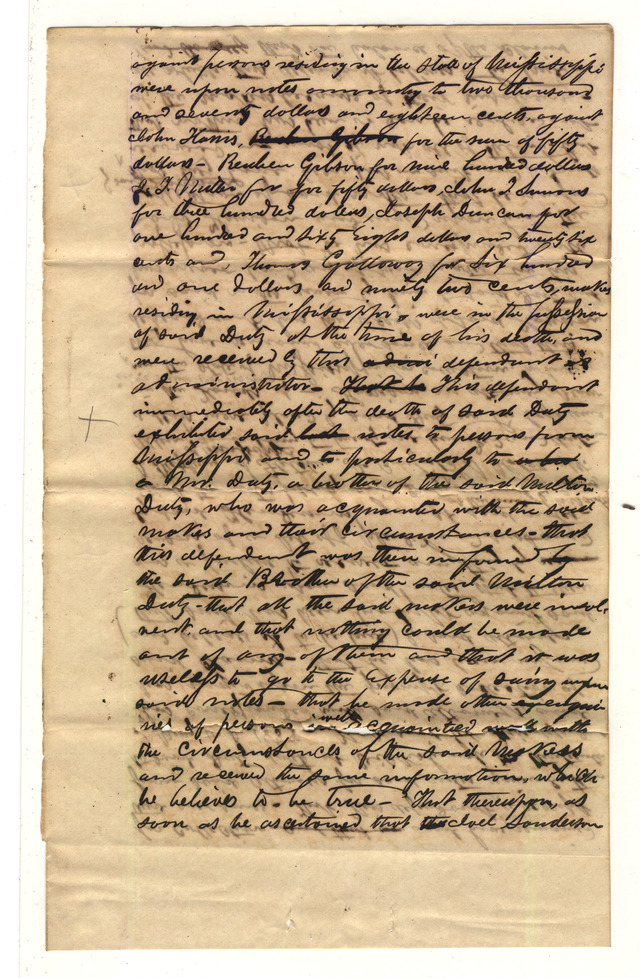 against persons residing in the state of Mississippi
were upon notes amounting to two thousand
and seventy dollars and eighteen cents, against
John Harris, Reuben Gibson for the sum of fifty
dollars – Reuben Gibson for nine hundred dollars
J. Miller for for fifty dollars, John J Simons
for three hundred dollars, Joseph Duncan for
one hundred and sixty Eight dollars and twenty six
cents and, Thomas Galloway for six hundred
and one dollars and ninety two cents, makers
residing in Mississippi, were in the possession
of said Duty at the time of his death, and
were received by this defendant as
administrator – This defendant
immediately after the death of said Duty
exhibited said notes to persons from
Mississippi and to particularly to
a Mr. Duty, a brother of the said Milton
Duty, who was acquainted with the said
makers and their circumstances – that
this defendant was then informed by
the said Brother of the said Milton
Duty – that all the said makers were insol-
vent, and that nothing could be made
out of any of them and that it was
useless to go to the Expense of suing upon
said notes – that he made other enqui
ries of persons well acquainted with
the circumstances of the said Makers
and received the same information, which
he believes to be true – That thereupon, as
soon as he ascertained that Joel Sanderson